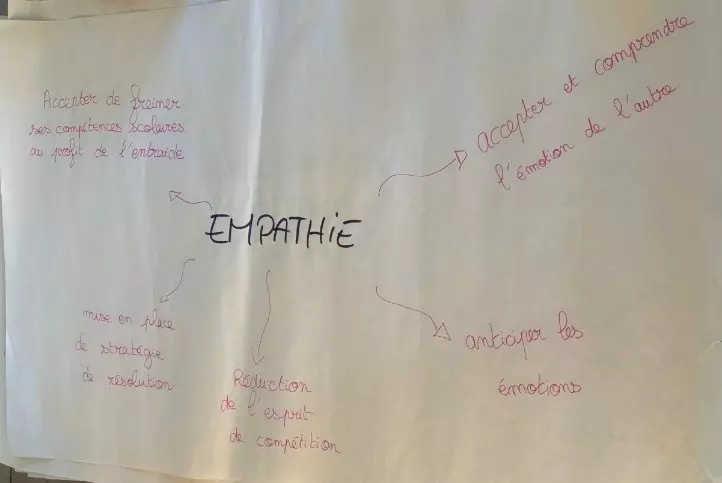 Accepter de freiner
ses compétences scolaires
au profit de l'entraide
accepter et comprendre
l'émotion de l'autre
EMPATHiE
mise en place
de stratégie
de résolution
Réduction
de l'esprit
de compétition
anticiper les
émotions